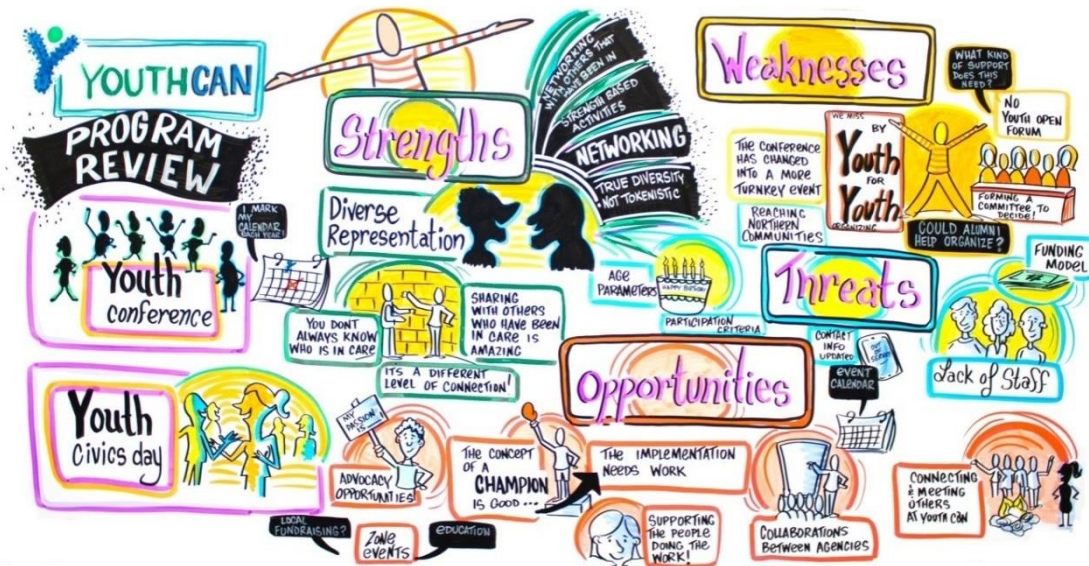 YOUTHCAN
PROGRAM
REVIEW
I MARK
MY
CALENDAR
EACH YEAR!
Youth
conference
Youth
Civics day
Strengths
NETWORKING
WITH OTHERS THAT
HAVE BEEN IN
STRENGTH BASED
ACTIVITIES
NETWORKING
TRUE DIVERSITY
NOT TOKENISTIC
Diverse
Representation
YOU DONT
ALWAYS KNOW
WHO IS IN CARE
SHARING
WITH OTHERS
WHO HAVE BEEN
IN CARE IS
AMAZING
ITS A DIFFERENT
LEVEL OF CONNECTION!
Weaknesses
WHAT KIND
OF SUPPORT
DOES THIS
NEED?
NO
YOUTH OPEN
FORUM
THE CONFERENCE
HAS CHANGED
INTO A MORE
TURNKEY EVENT
WE MISS
BY
Youth
FOR
Youth
ORGANIZING
FORMING A
COMMITTEE TO
DECIDE!
REACHING
NORTHERN
COMMUNITIES
COULD ALUMNI
HELP ORGANIZE?
AGE
PARAMETERS
HAPPY BIRTHDAY
PARTICIPATION
CRITERIA
Threats
FUNDING
MODEL
CONTACT
INFO
UPDATED
OUT
OF
SERVICE
Lack of Staff
EVENT
CALENDAR
Opportunities
MY
PASSION
IS
ADVOCACY
OPPORTUNITIES
THE CONCEPT
OF A
CHAMPION
IS GOOD...
THE IMPLEMENTATION
NEEDS WORK
LOCAL
FUNDRAISING?
ZONE
EVENTS
EDUCATION
SUPPORTING
THE PEOPLE
DOING THE
WORK!
COLLABORATIONS
BETWEEN AGENCIES
CONNECTING
& MEETING
OTHERS
AT YOUTH CAN